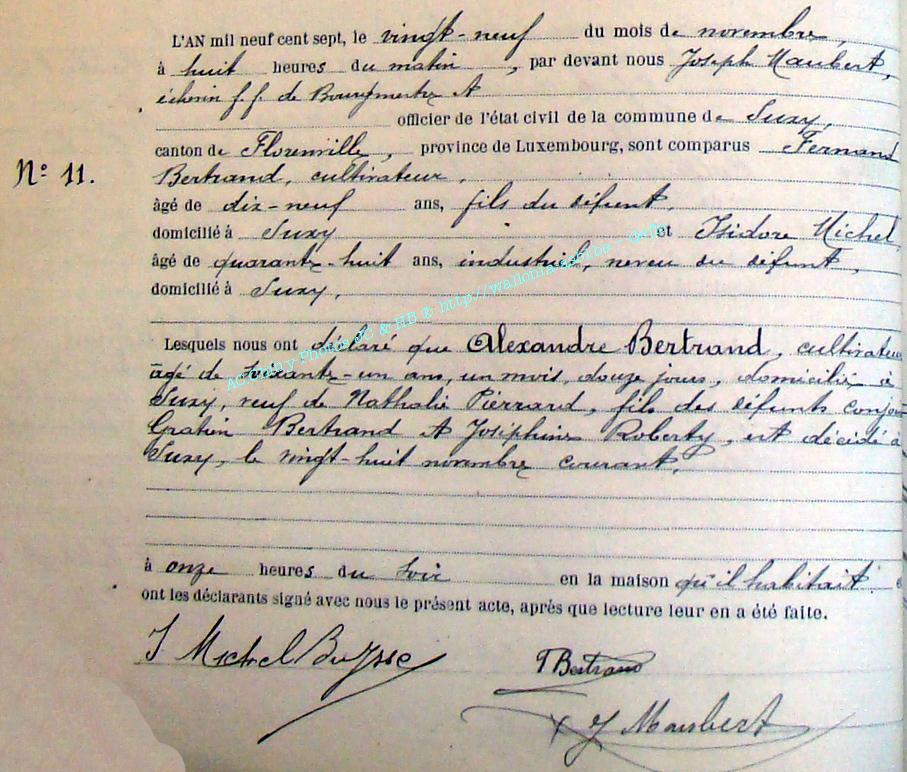 L'AN mil neuf cent sept, le vingt-neuf du mois de novembre,
à huit heures du matin, par devant nous Joseph Maubert,
échevin f.f. de Bourgmestre et
officier de l'état civil de la commune de Suxy,
canton de Florenville, province de Luxembourg, sont comparus Fernand
Nº 11.
Bertrand, cultivateur,
âgé de dix-neuf ans, fils du défunt,
domicilié à Suxy et Isidore Michel
âgé de quarante-huit ans, industriel, neveu du défunt,
domicilié à Suxy,
Lesquels nous ont déclaré que Alexandre Bertrand, cultivateur
âgé de soixante-un ans, un mois, douze jours, domicilié à
Suxy, veuf de Nathalie Pierrard, fils des défunts conjoints
Gratien Bertrand et Joséphine Roberty, est décédé à
Suxy, le vingt-huit novembre courant,
à onze heures du soir en la maison qu'il habitait.
ont les déclarants signé avec nous le présent acte, après que lecture leur en a été faite.
J Michel Buysse
F Bertrand
J Maubert
Photos JC & HB ® http://wallonia